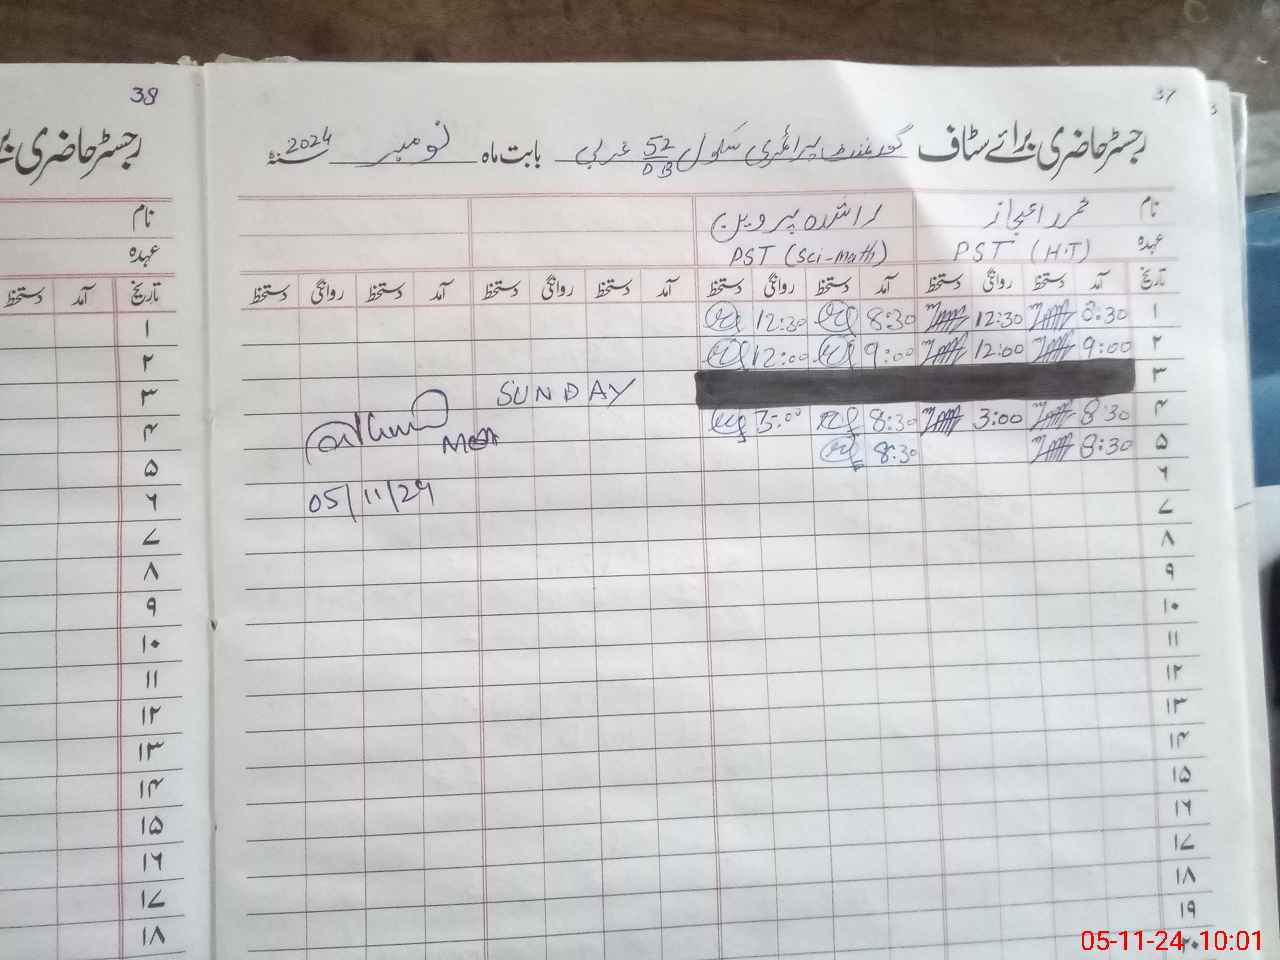 38
37
رجسٹر حاضری برائے سٹاف گورنمنٹ پرائمری سکول 52/DB غربی بابت ماہ نومبر سنہ 2024
رجسٹر حاضری
نام محمد اعجاز راشدہ پروین
عہدہ PST (H.T) PST (Sci-Math)
تاریخ آمد دستخط روانگی دستخط آمد دستخط روانگی دستخط آمد دستخط روانگی دستخط آمد دستخط روانگی دستخط
۱ 8:30 12:30 8:30 12:30
۲ 9:00 12:00 9:00 12:00
۳ SUNDAY
۴ 8:30 3:00 8:30 3:00
۵ 8:30 8:30
۶
۷
۸
۹
۱۰
۱۱
۱۲
۱۳
۱۴
۱۵
۱۶
۱۷
۱۸
۱۹
۲۰
05/11/24
نام
عہدہ
تاریخ آمد دستخط
۱
۲
۳
۴
۵
۶
۷
۸
۹
۱۰
۱۱
۱۲
۱۳
۱۴
۱۵
۱۶
۱۷
۱۸
05-11-24 10:01